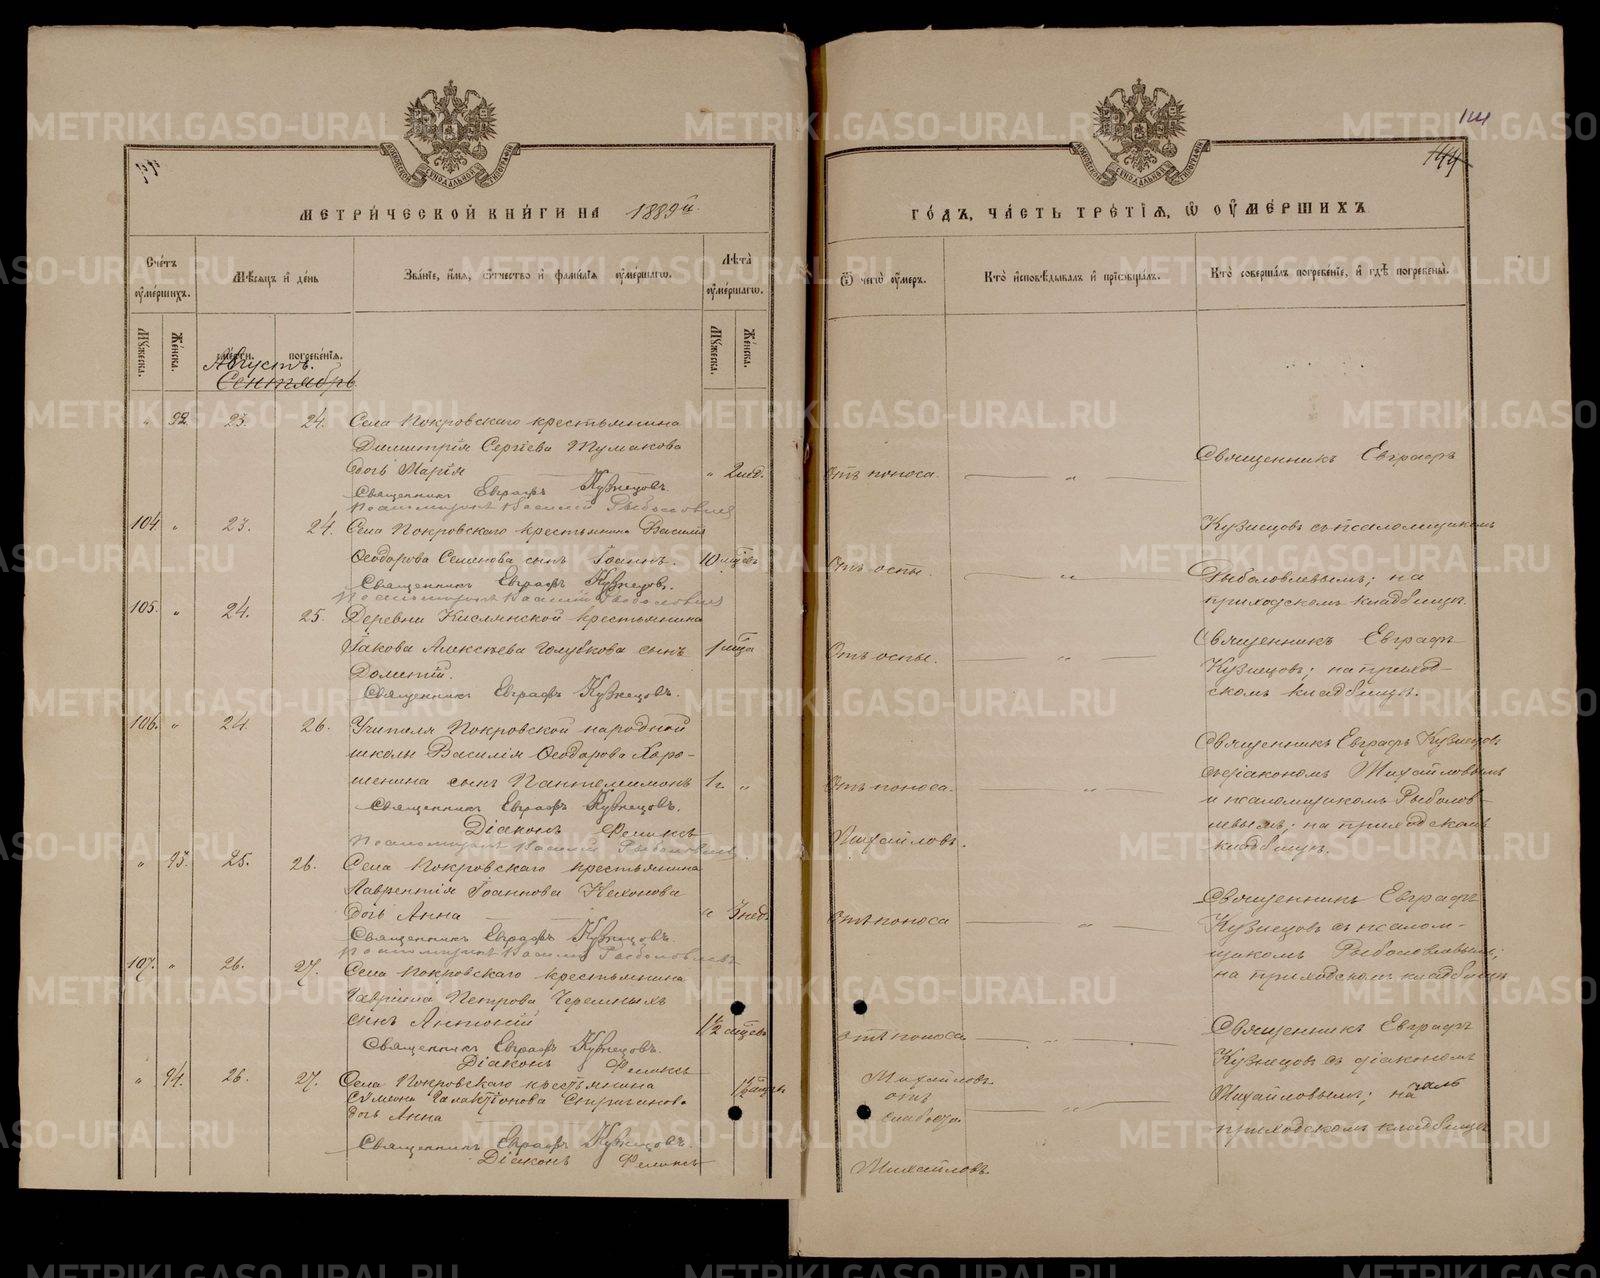 METRIKI.GASO-URAL.RU
144
МЕТРИЧЕСКОЙ КНИГИ НА 1889й.
Счетъ умершихъ.
Мѣсяцъ и день
Званіе, имя, отчество и фамилія умершаго.
Лѣта умершаго.
Мужеска. Женска.
смерти. погребенія.
Мужеска. Женска.
Августъ.
Сентябрь
" 92. 23. 24. Села Покровскаго крестьянина
Димитрія Сергіева Тумакова
дочь Марія " 2 нед.
Священникъ Евграфъ Кузнецовъ.
Псаломщикъ Василій Рыболовлевъ
104. " 23. 24. Села Покровскаго крестьянина Василія
Ѳеодорова Семенова сынъ Іоаннъ. 10 мѣсц.
Священникъ Евграфъ Кузнецовъ.
Псаломщикъ Василій Рыболовлевъ
105. " 24. 25. Деревни Кислянской крестьянина
Іакова Алексѣева Голубкова сынъ 1 мѣца
Дометій.
Священникъ Евграфъ Кузнецовъ.
106. " 24. 26. Учителя Покровской народной
школы Василія Ѳеодорова Хоро-
шенина сынъ Пантелеимонъ 1 г. "
Священникъ Евграфъ Кузнецовъ.
Діаконъ Феликсъ
Псаломщикъ Василій Рыболовлевъ
" 93. 25. 26. Села Покровскаго крестьянина
Лаврентія Іоаннова
дочь Анна " 3 нед.
Священникъ Евграфъ Кузнецовъ.
Псаломщикъ Василій Рыболовлевъ
107. " 26. 27. Села Покровскаго крестьянина
Гавріила Петрова Черемныхъ
сынъ Антоній 1½ мѣсцев.
Священникъ Евграфъ Кузнецовъ.
Діаконъ Феликсъ
" 94. 26. 27. Села Покровскаго крестьянина
Сумеона Галактіонова
дочь Анна 1½
Священникъ Евграфъ Кузнецовъ.
Діаконъ Феликсъ
ГОДЪ, ЧАСТЬ ТРЕТІЯ, Ѡ УМЕРШИХЪ
Ѿ чего умеръ.
Кто исповѣдывалъ и пріобщалъ.
Кто совершалъ погребеніе, и гдѣ погребены.
Отъ поноса. "
Священникъ Евграфъ
Кузнецовъ съ псаломщикомъ
Отъ оспы. "
Рыболовлевымъ; на
приходскомъ кладбищѣ.
Отъ оспы. "
Священникъ Евграфъ
Кузнецовъ; на приход-
скомъ кладбищѣ.
Отъ поноса. "
Священникъ Евграфъ Кузнецовъ
съ діакономъ Михайловымъ
и псаломщикомъ Рыболов-
левымъ; на приходскомъ
кладбищѣ.
Михайловъ.
Отъ поноса "
Священникъ Евграфъ
Кузнецовъ съ псалом-
щикомъ Рыболовлевымъ;
на приходскомъ кладбищѣ
отъ поноса "
Священникъ Евграфъ
Кузнецовъ съ діакономъ
Михайловъ.
отъ
слабости. "
Михайловымъ; на
приходскомъ кладбищѣ
Михайловъ.